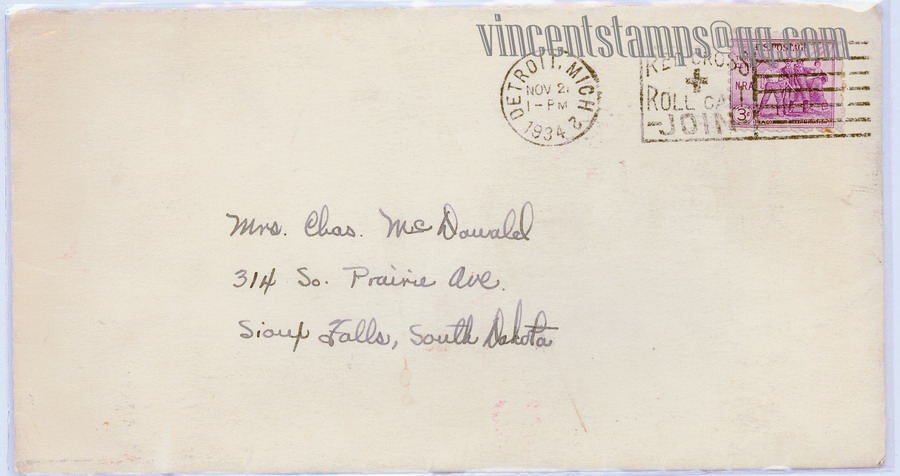 vincentstamps@qq.com
DETROIT, MICH 2
NOV 2
1-PM
1934
RED CROSS
ROLL CALL
JOIN
U.S. POSTAGE
NRA
3¢
Mrs. Chas. McDowald
314 So. Prairie Ave.
Sioux Falls, South Dakota